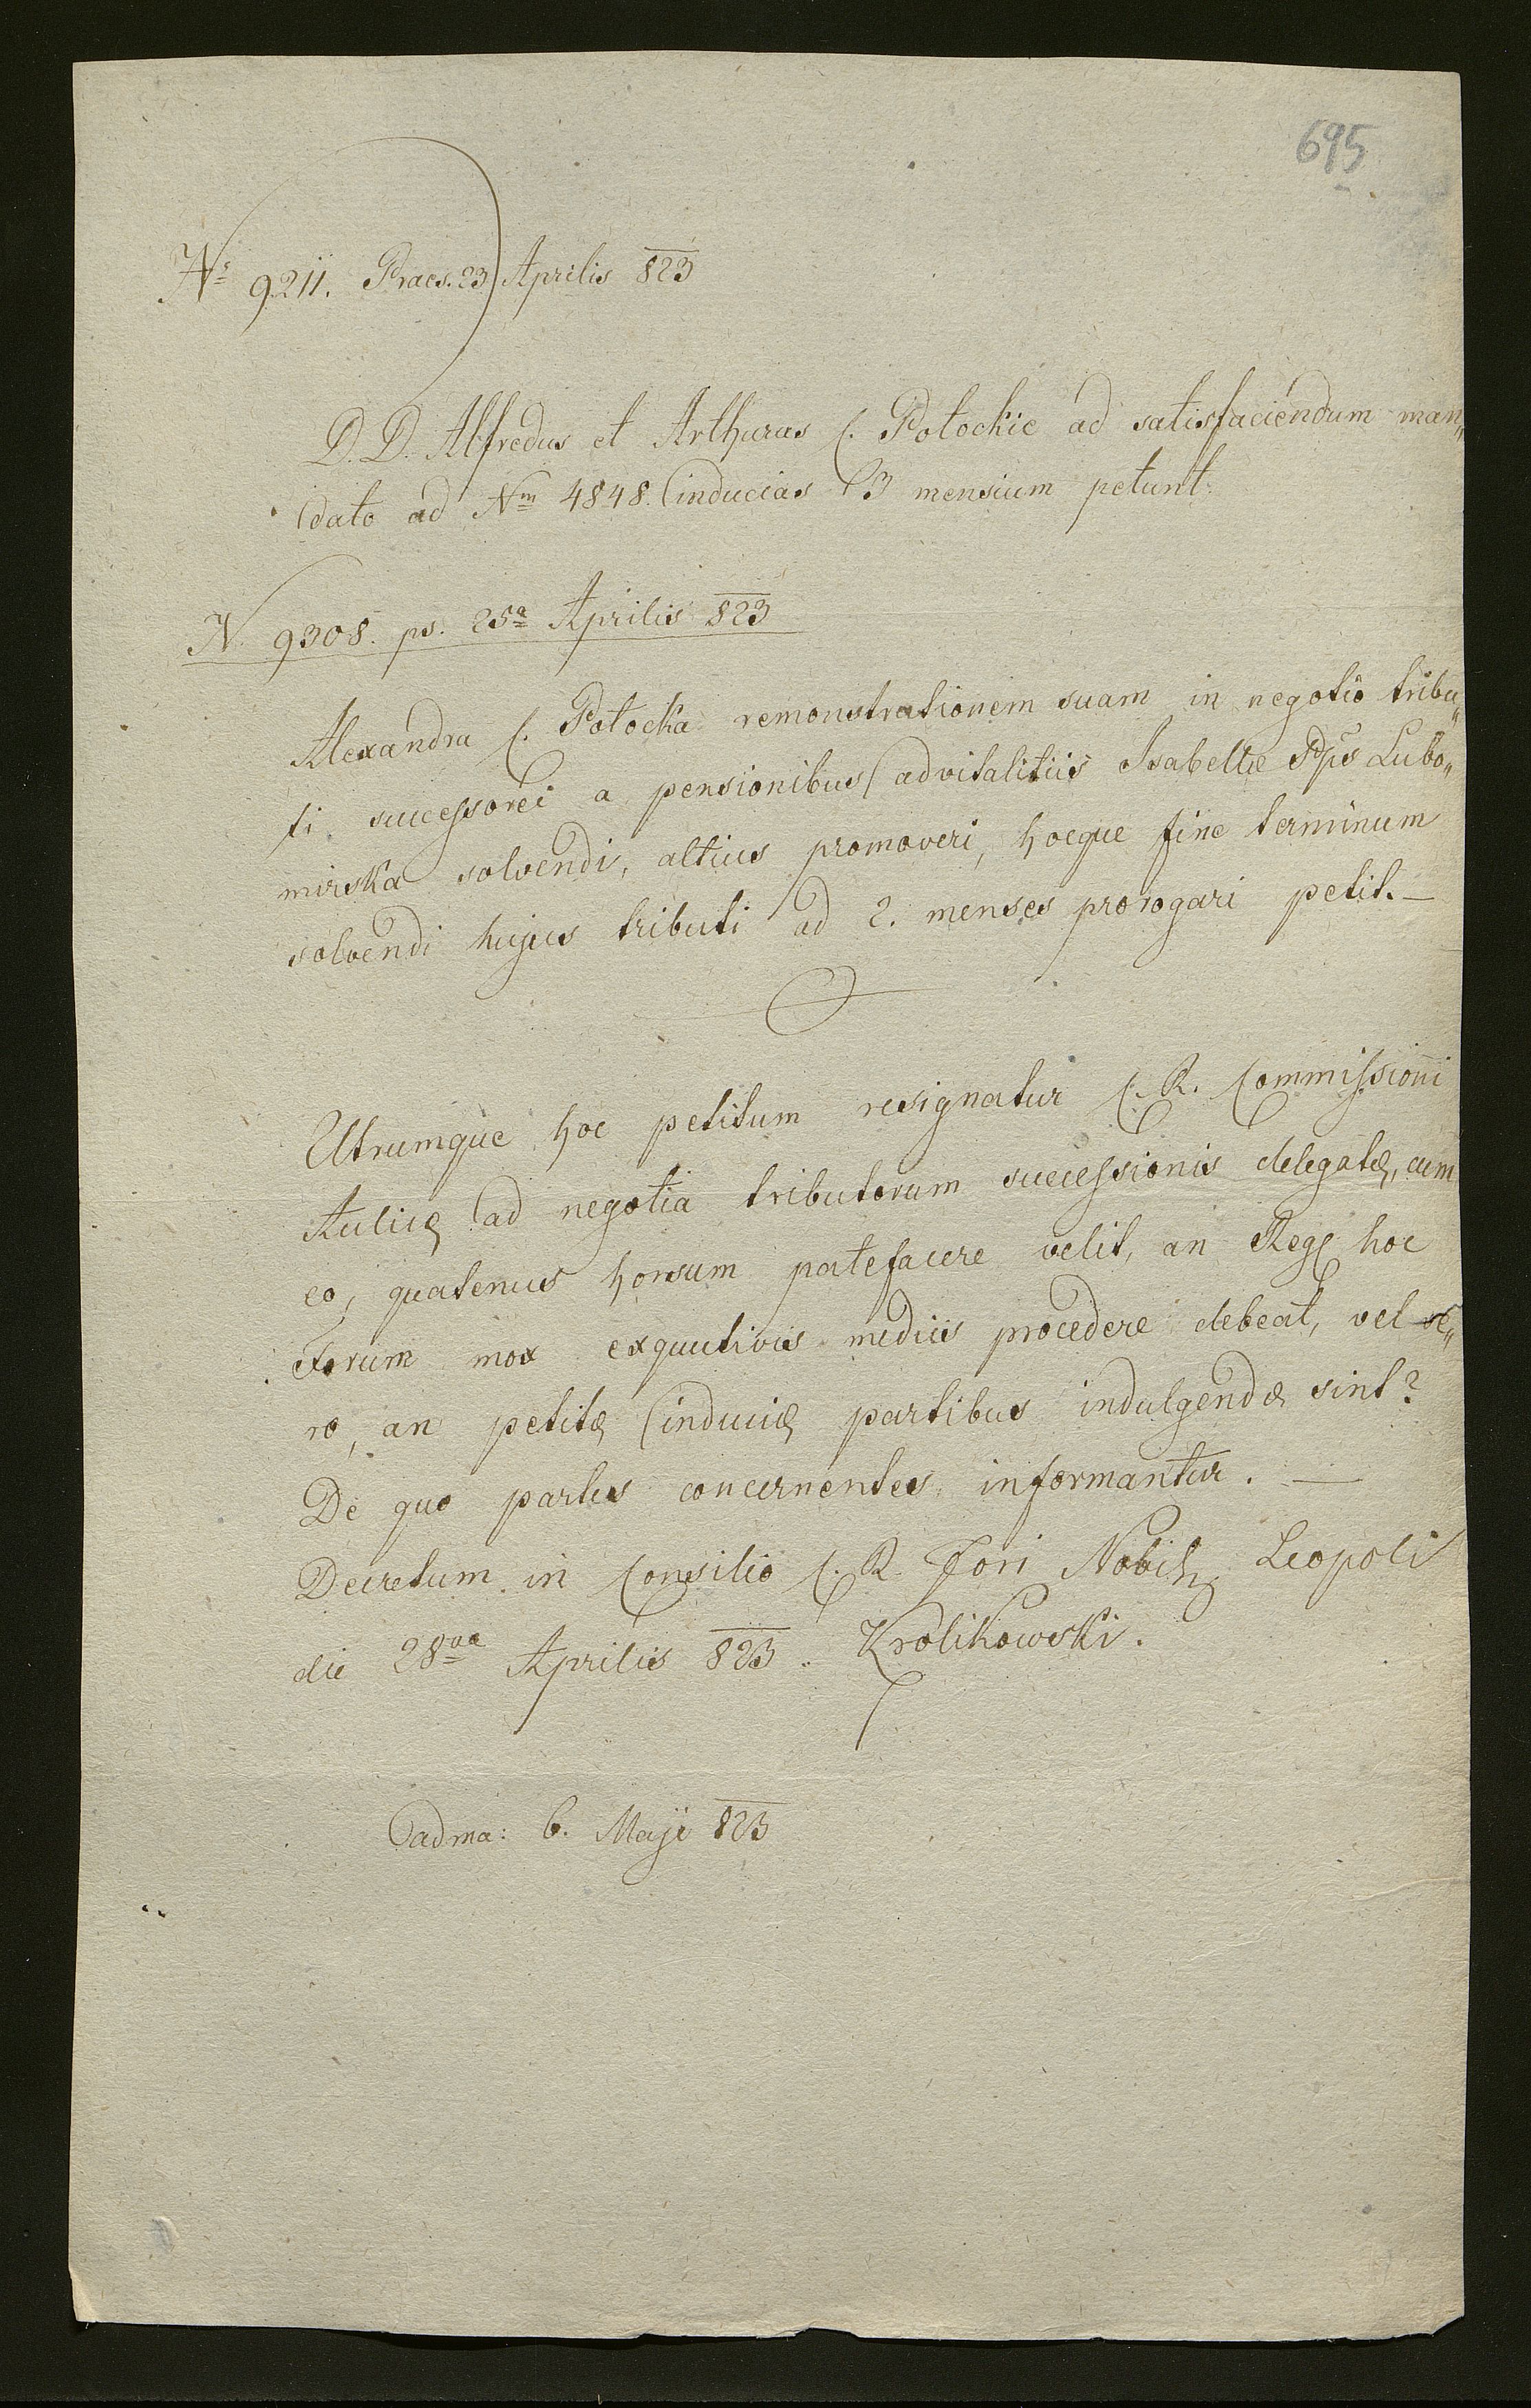 695
Nr 9211. Praes. 23 Aprilis 823
D. D. Alfredus et Arthurus C. Potockie ad satisfaciendum man„
dato ad Nm 4848. inducias 3 mensium petunt.
N. 9308. ps. 25a Aprilis 823
Alexandra C. Potocka remonstrationem suam in negotio tribu„
ti successorei a pensionibus advitalitiis Isabellæ Pps Lubo„
mirska solvendi, altius promoveri, hocque fine terminum
solvendi hujus tributi ad 2. menses prorogari petit. —
Utrumque hoc petitum resignatur C. R. Commissioni
Aulicæ ad negotia tributorum successionis delegatæ, cum
eo, quatenus horsum patefacere velit, an Regę hoc
Forum mox exquutivis mediis procedere debeat, vel ve„
ro, an petitæ induciæ partibus indulgendæ sint?
De quo partes concernentes informantur. —
Decretum in Consilio C. R. Fori Nobil. Leopoli
die 28va Aprilis 823. Krolikowski.
adma: 6. Maji 823